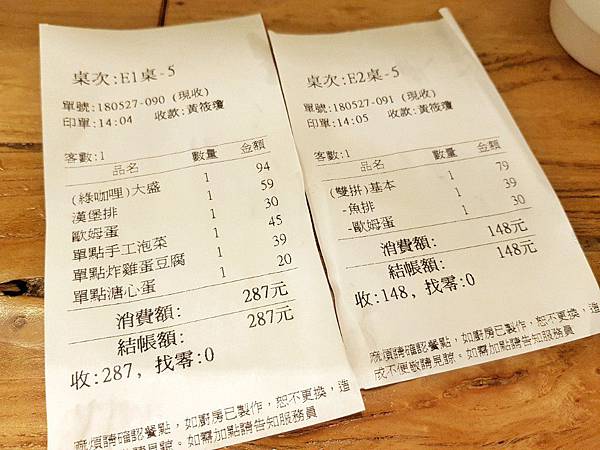 桌次:E1桌-5
單號:180527-090 (現收)
印單:14:04 收款:黃筱瓊
客數:1
品名 數量 金額
(綠咖哩)大盛 1 94
漢堡排 1 59
歐姆蛋 1 30
單點手工泡菜 1 45
單點炸雞蛋豆腐 1 39
單點溏心蛋 1 20
消費額: 287元
結帳額: 287元
收:287, 找零:0
麻煩請確認餐點，如廚房已製作，恕不更換，造
成不便敬請見諒。如需加點請告知服務員
桌次:E2桌-5
單號:180527-091 (現收)
印單:14:05 收款:黃筱瓊
客數:1
品名 數量 金額
(雙拼)基本 1 79
-魚排 1 39
-歐姆蛋 1 30
消費額: 148元
結帳額: 148元
收:148, 找零:0
麻煩請確認餐點，如廚房已製作，恕不更換，造
成不便敬請見諒。如需加點請告知服務員